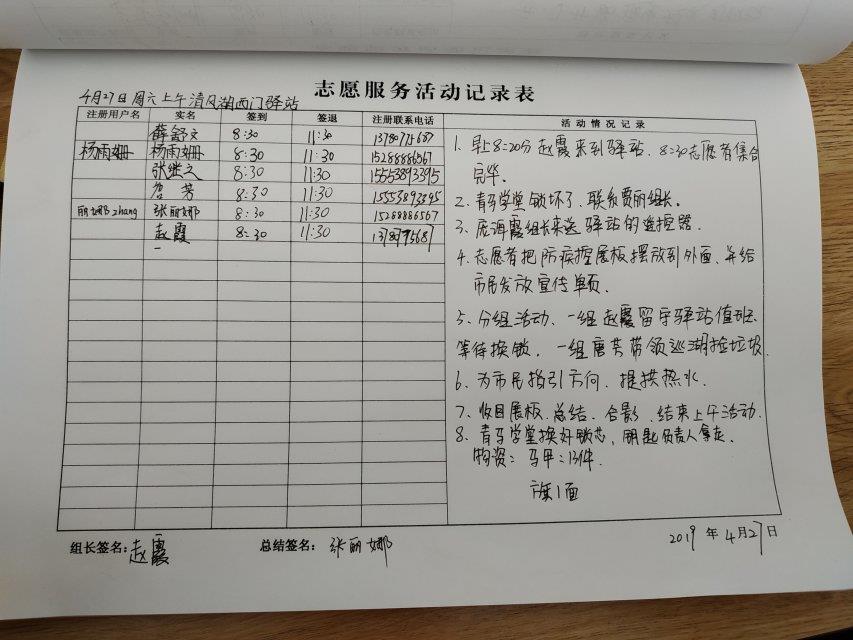 志愿服务活动记录表
4月27日周六上午清风湖西门驿站
注册用户名 实名 签到 签退 注册联系电话 活动情况记录
薛舒文 8:30 11:30
杨雨姗 杨雨姗 8:30 11:30 15288886567
张继文 8:30 11:30 15553893395
唐芳 8:30 11:30 15553893395
丽娜zhang 张丽娜 8:30 11:30 15288886567
赵霞 8:30 11:30
1. 早上8:20分赵霞来到驿站、8:30志愿者集合
完毕.
2. 青马学堂锁坏了、联系贾丽组长.
3. 庞海霞组长来送驿站的遥控器.
4. 志愿者把防疾控展板摆放到外面、并给
市民发放宣传单页.
5. 分组活动、一组赵霞留守驿站值班、
等待换锁. 一组唐芳带领巡湖捡垃圾.
6. 为市民指引方向、提供热水.
7. 收回展板、总结、合影、结束上午活动.
8. 青马学堂换好锁芯,钥匙负责人拿走.
物资:马甲:13件.
旗1面
组长签名:赵霞 总结签名:张丽娜 2019年4月27日